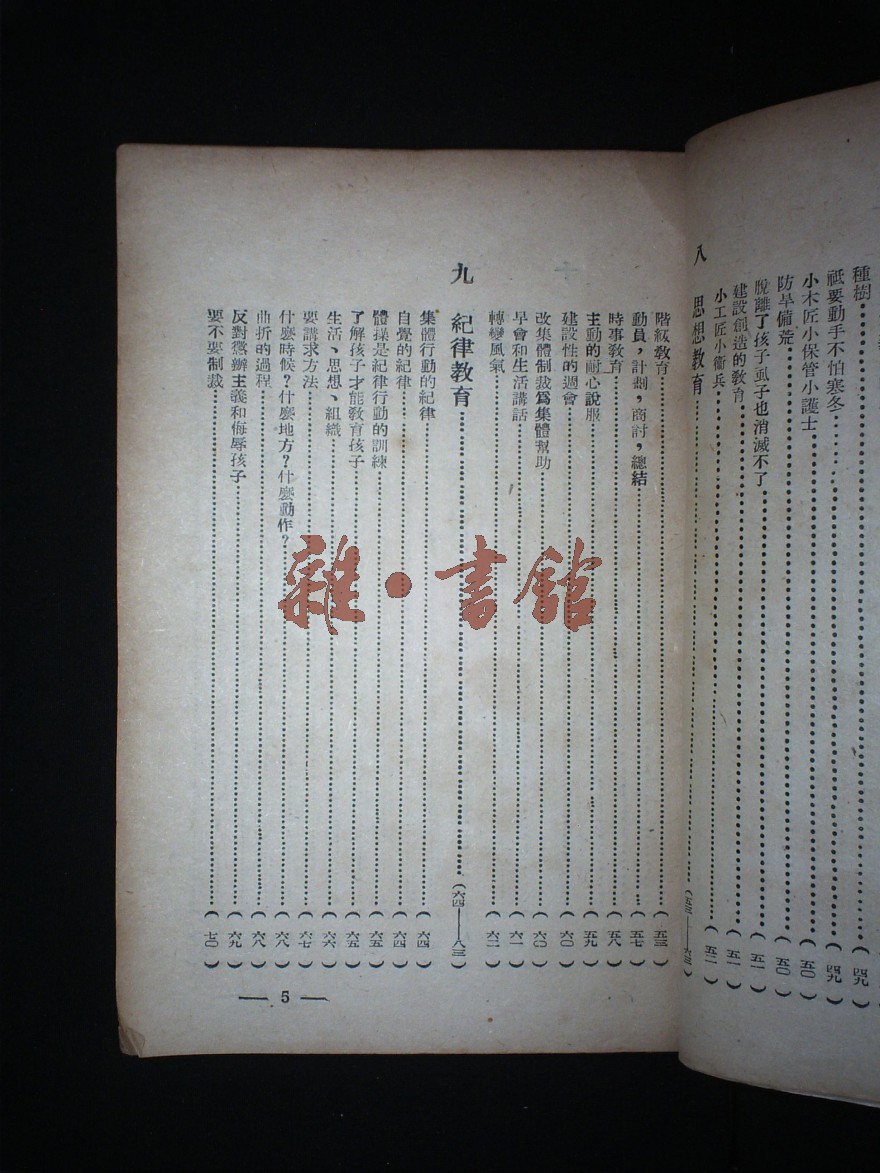 種樹……(四九)
祗要動手不怕寒冬……(四九)
小木匠小保管小護士……(五〇)
防旱備荒……(五〇)
脫離了孩子虱子也消滅不了……(五一)
建設創造的教育……(五一)
小工匠小衞兵……(五二)
八 思想教育……(五三——六三)
階級教育……(五三)
動員，計劃，商討，總結……(五七)
時事教育……(五八)
主動的耐心說服……(五九)
建設性的週會……(六〇)
改集體制裁爲集體幫助……(六〇)
早會和生活講話……(六一)
轉變風氣……(六二)
九 紀律教育……(六四——八三)
集體行動的紀律……(六四)
自覺的紀律……(六四)
體操是紀律行動的訓練……(六五)
了解孩子才能教育孩子……(六五)
生活、思想、組織……(六六)
要講求方法……(六七)
什麼時候？什麼地方？什麼動作？……(六八)
曲折的過程……(六八)
反對懲辦主義和侮辱孩子……(六九)
要不要制裁……(七〇)
— 5 —
雜·書館